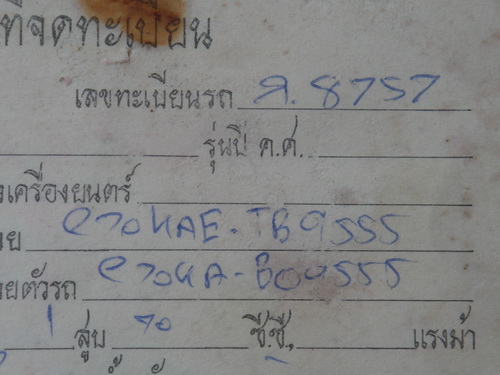 ที่จดทะเบียน
เลขทะเบียนรถ ล. 8757
รุ่นปี ค.ศ.
เครื่องยนต์
C70HAE-TB9555
ตัวรถ C70HA-B09555
1 สูบ 70 ซี.ซี., แรงม้า